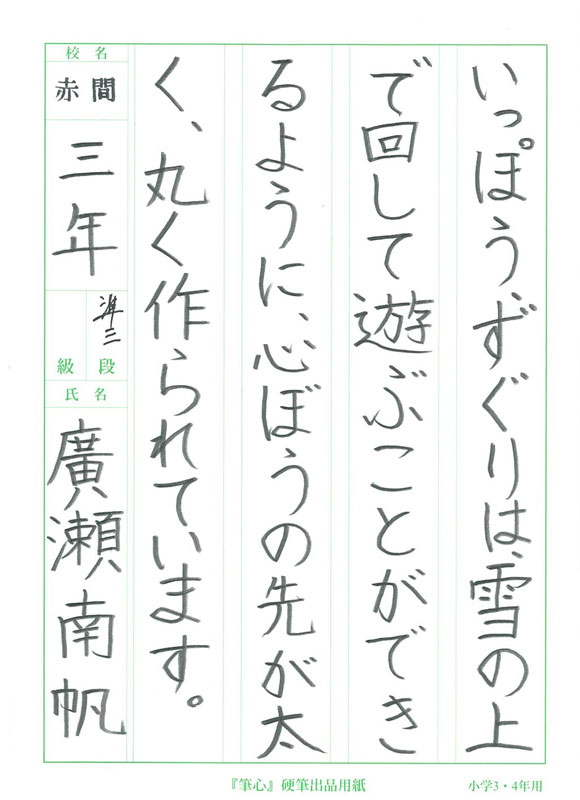 いっぽう、ずぐりは、雪の上
で回して遊ぶことができ
るように、心ぼうの先が太
く、丸く作られています。
校名
赤間
三年
準三
段
級
氏名
廣瀬南帆
『筆心』硬筆出品用紙
小学3・4年用